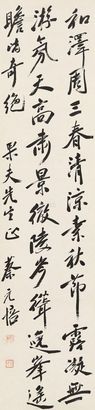 和澤周三春清涼素秋節露凝無
游氛天高肅景澈陵岑聳逸峯遙
瞻皆奇絕
果夫先生正 蔡元培